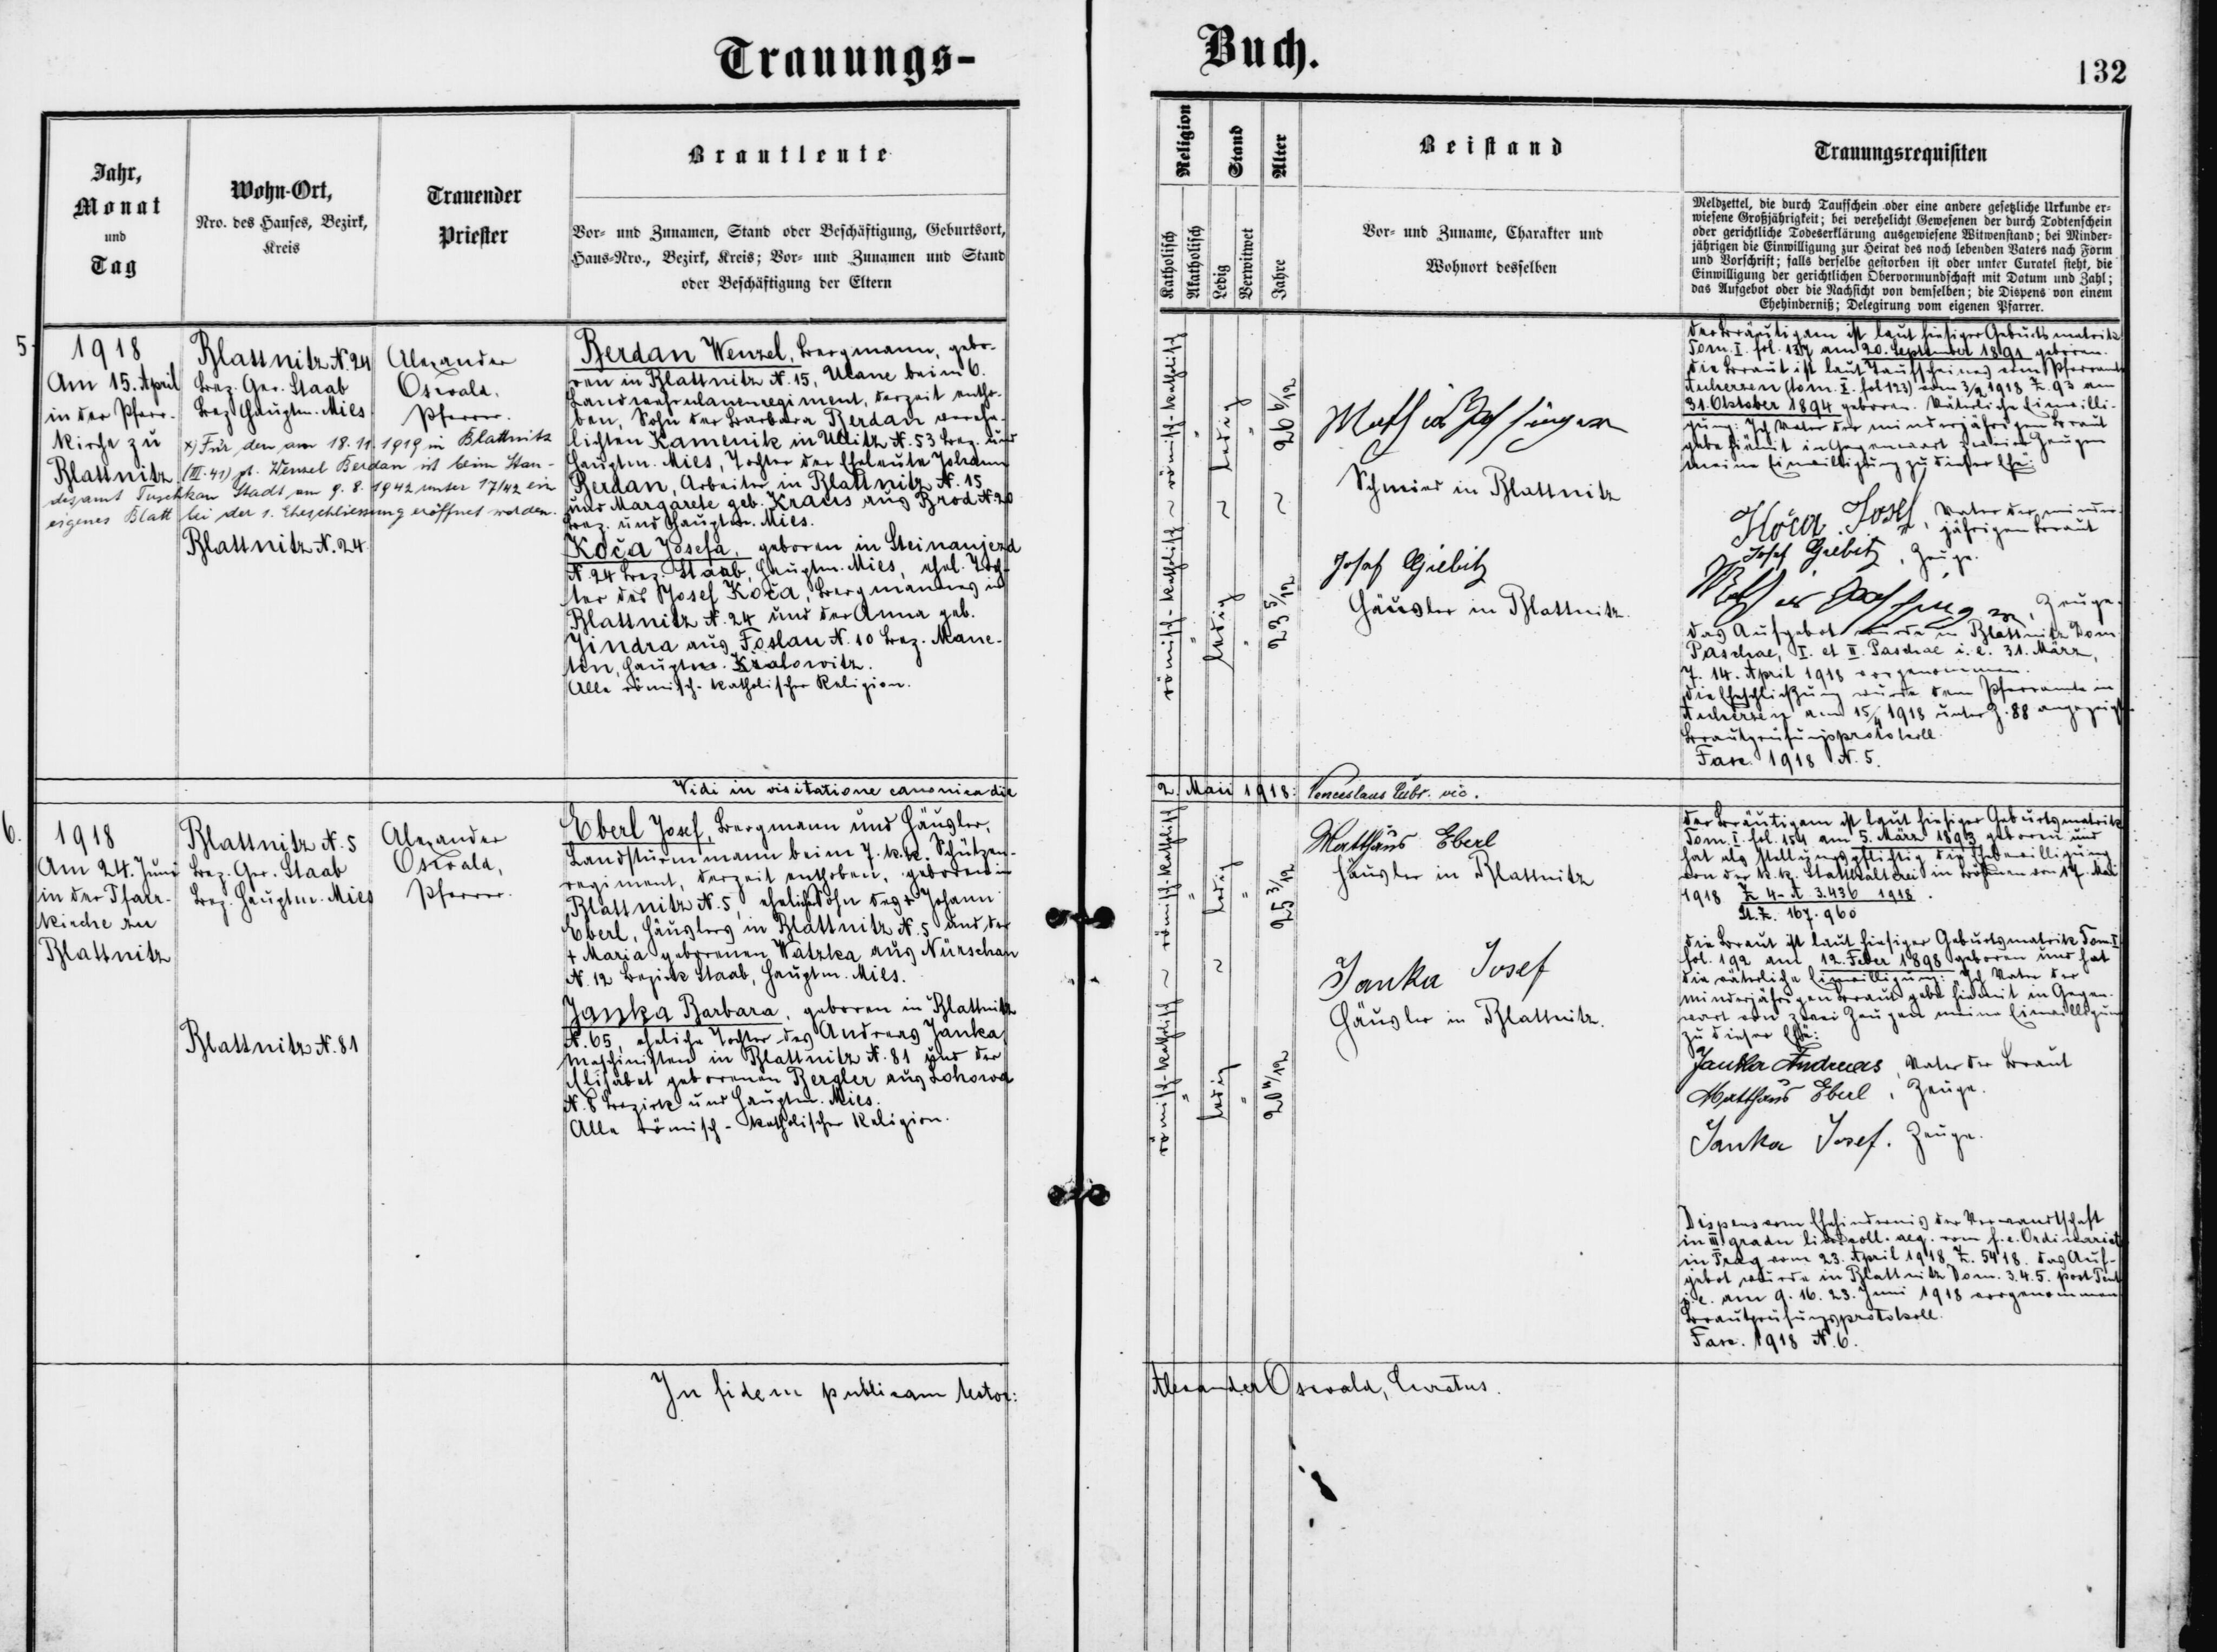 Trauungs-
Buch.
132
Jahr,
Monat
und
Tag
Wohn-Ort,
Nro. des Hauses, Bezirk,
Kreis
Trauender
Priester
Brautleute
Vor- und Zunamen, Stand oder Beschäftigung, Geburtsort,
Haus-Nro., Bezirk, Kreis; Vor- und Zunamen und Stand
oder Beschäftigung der Eltern
Religion
Katholisch
Akatholisch
Stand
Ledig
Verwitwet
Alter
Jahre
Beistand
Vor- und Zuname, Charakter und
Wohnort desselben
Trauungsrequisiten
Meldzettel, die durch Taufschein oder eine andere gesetzliche Urkunde er-
wiesene Großjährigkeit; bei verehelicht Gewesenen der durch Todtenschein
oder gerichtliche Todeserklärung ausgewiesene Witwenstand; bei Minder-
jährigen die Einwilligung zur Heirat des noch lebenden Vaters nach Form
und Vorschrift; falls derselbe gestorben ist oder unter Curatel steht, die
Einwilligung der gerichtlichen Obervormundschaft mit Datum und Zahl;
das Aufgebot oder die Nachsicht von demselben; die Dispens von einem
Ehehinderniß; Delegirung vom eigenen Pfarrer.
5.
1918
Am 15. April
in der Pfarr-
kirche zu
Blattnitz
Blattnitz N. 24
Bez. Ger. Staab
Bez. Hauptm. Mies
x) Für den am 18. 11. 1919 in Blattnitz
(III. 41) g. Wenzel Berdan ist beim Stan-
desamt Tuschkau Stadt am 9. 8. 1942 unter 17/42 ein
eigenes Blatt bei der 1. Eheschliessung eröffnet worden.
Blattnitz N. 24.
Alexander
Oswald,
Pfarrer.
Berdan Wenzel, Bergmann, gebo-
ren in Blattnitz N. 15, Ulane beim 6.
Landwehrulanenregiment, derzeit entho-
ben, Sohn der Barbara Berdan vereh-
lichten Kamenik in Ullitz N. 53 Bez. und
Hauptm. Mies, Tochter der Eheleute Johann
Berdan, Arbeiter in Blattnitz N. 15
und Margarete geb. Kraus aus Brod N. 20
Bez. und Hauptm. Mies.
Koča Josefa, geboren in Steinaujezd
N. 24 Bez. Staab, Hauptm. Mies, ehel. Toch-
ter des Josef Koča, Bergmannes in
Blattnitz N. 24 und der Anna geb.
Jindra aus Foslau N. 10 Bez. Mane-
tin, Hauptm. Kralowitz.
Alle römisch-katholischer Religion.
römisch-katholisch ~ römisch-katholisch
ledig ~ ledig
26 6/12
23 5/12
Schmied in Blattnitz
Josef Giebitz
Häusler in Blattnitz.
Der Bräutigam ist laut hiesiger Geburtsmatrik
Tom. I. fol. 137 am 20. September 1891 geboren.
Die Braut ist laut Taufscheines vom Pfarramte
Auherzen (Tom. I. fol 123) vom 3/2 1918 Z. 93 am
31. Oktober 1894 geboren. Väterliche Einwilli-
gung: Ich Vater der minderjährigen Braut
gebe hiemit in Gegenwart zweier Zeugen
meine Einwilligung zu dieser Ehe:
Koča Josef, Vater der minder-
jährigen Braut
Josef Giebitz, Zeuge.
Zeuge.
Das Aufgebot wurde in Blattnitz Dom.
Paschae, I. et II. Paschae i. e. 31. März,
7. 14. April 1918 vorgenommen.
Die Eheschließung wurde dem Pfarramte in
Auherzen am 15/4 1918 unter Z. 88 angezeigt.
Brautprüfungsprotokoll.
Fasc. 1918 N. 5.
Vidi in visitatione canonica die
2. Maii 1918: Venceslaus
vic.
6.
1918
Am 24. Juni
in der Pfarr-
kirche zu
Blattnitz
Blattnitz N. 5
Bez. Ger. Staab
Bez. Hauptm. Mies
Blattnitz N. 81
Alexander
Oswald,
Pfarrer.
Eberl Josef, Bergmann und Häusler,
Landsturmmann beim 7. k.k. Schützen-
regiment, derzeit enthoben, geboren in
Blattnitz N. 5, ehelicher Sohn des + Johann
Eberl, Häuslers in Blattnitz N. 5 und der
+ Maria geborenen Watzka aus Nürschan
N. 12 Bezirk Staab, Hauptm. Mies.
Janka Barbara, geboren in Blattnitz
N. 65, eheliche Tochter des Andreas Janka,
Maschinisten in Blattnitz N. 81 und der
Elisabet geborenen Bergler aus Lohowa
N. 8 Bezirk und Hauptm. Mies.
Alle römisch-katholischer Religion.
römisch-katholisch ~ römisch-katholisch
ledig ~ ledig
25 3/12
20 4/12
Matthäus Eberl
Häusler in Blattnitz
Janka Josef
Häusler in Blattnitz.
Der Bräutigam ist laut hiesiger Geburtsmatrik
Tom. I. fol. 154 am 5. März 1893 geboren und
hat als Stellungspflichtig die Ehebewilligung
von der k.k. Statthalterei in Böhmen vom 17. Mai
1918 Z 4-A 3.436 1918.
St. Z. 167.960
Die Braut ist laut hiesiger Geburtsmatrik Tom. I
fol. 192 am 12. Feber 1898 geboren und hat
die väterliche Einwilligung: Ich Vater der
minderjährigen Braut gebe hiemit in Gegen-
wart von zwei Zeugen meine Einwilligung
zu dieser Ehe:
Janka Andreas, Vater der Braut
Matthäus Eberl, Zeuge.
Janka Josef. Zeuge.
Dispens vom Ehehindernis der Verwandtschaft
in III gradu lin. coll. aeq. vom f. e. Ordinariat
in Prag vom 23. April 1918 Z. 5418. Das Auf-
gebot wurde in Blattnitz Dom. 3. 4. 5. post Pent.
i. e. am 9. 16. 23. Juni 1918 vorgenommen
Brautprüfungsprotokoll.
Fasc. 1918 N. 6.
In fidem publicam testor:
Alexander Oswald, Curatus.